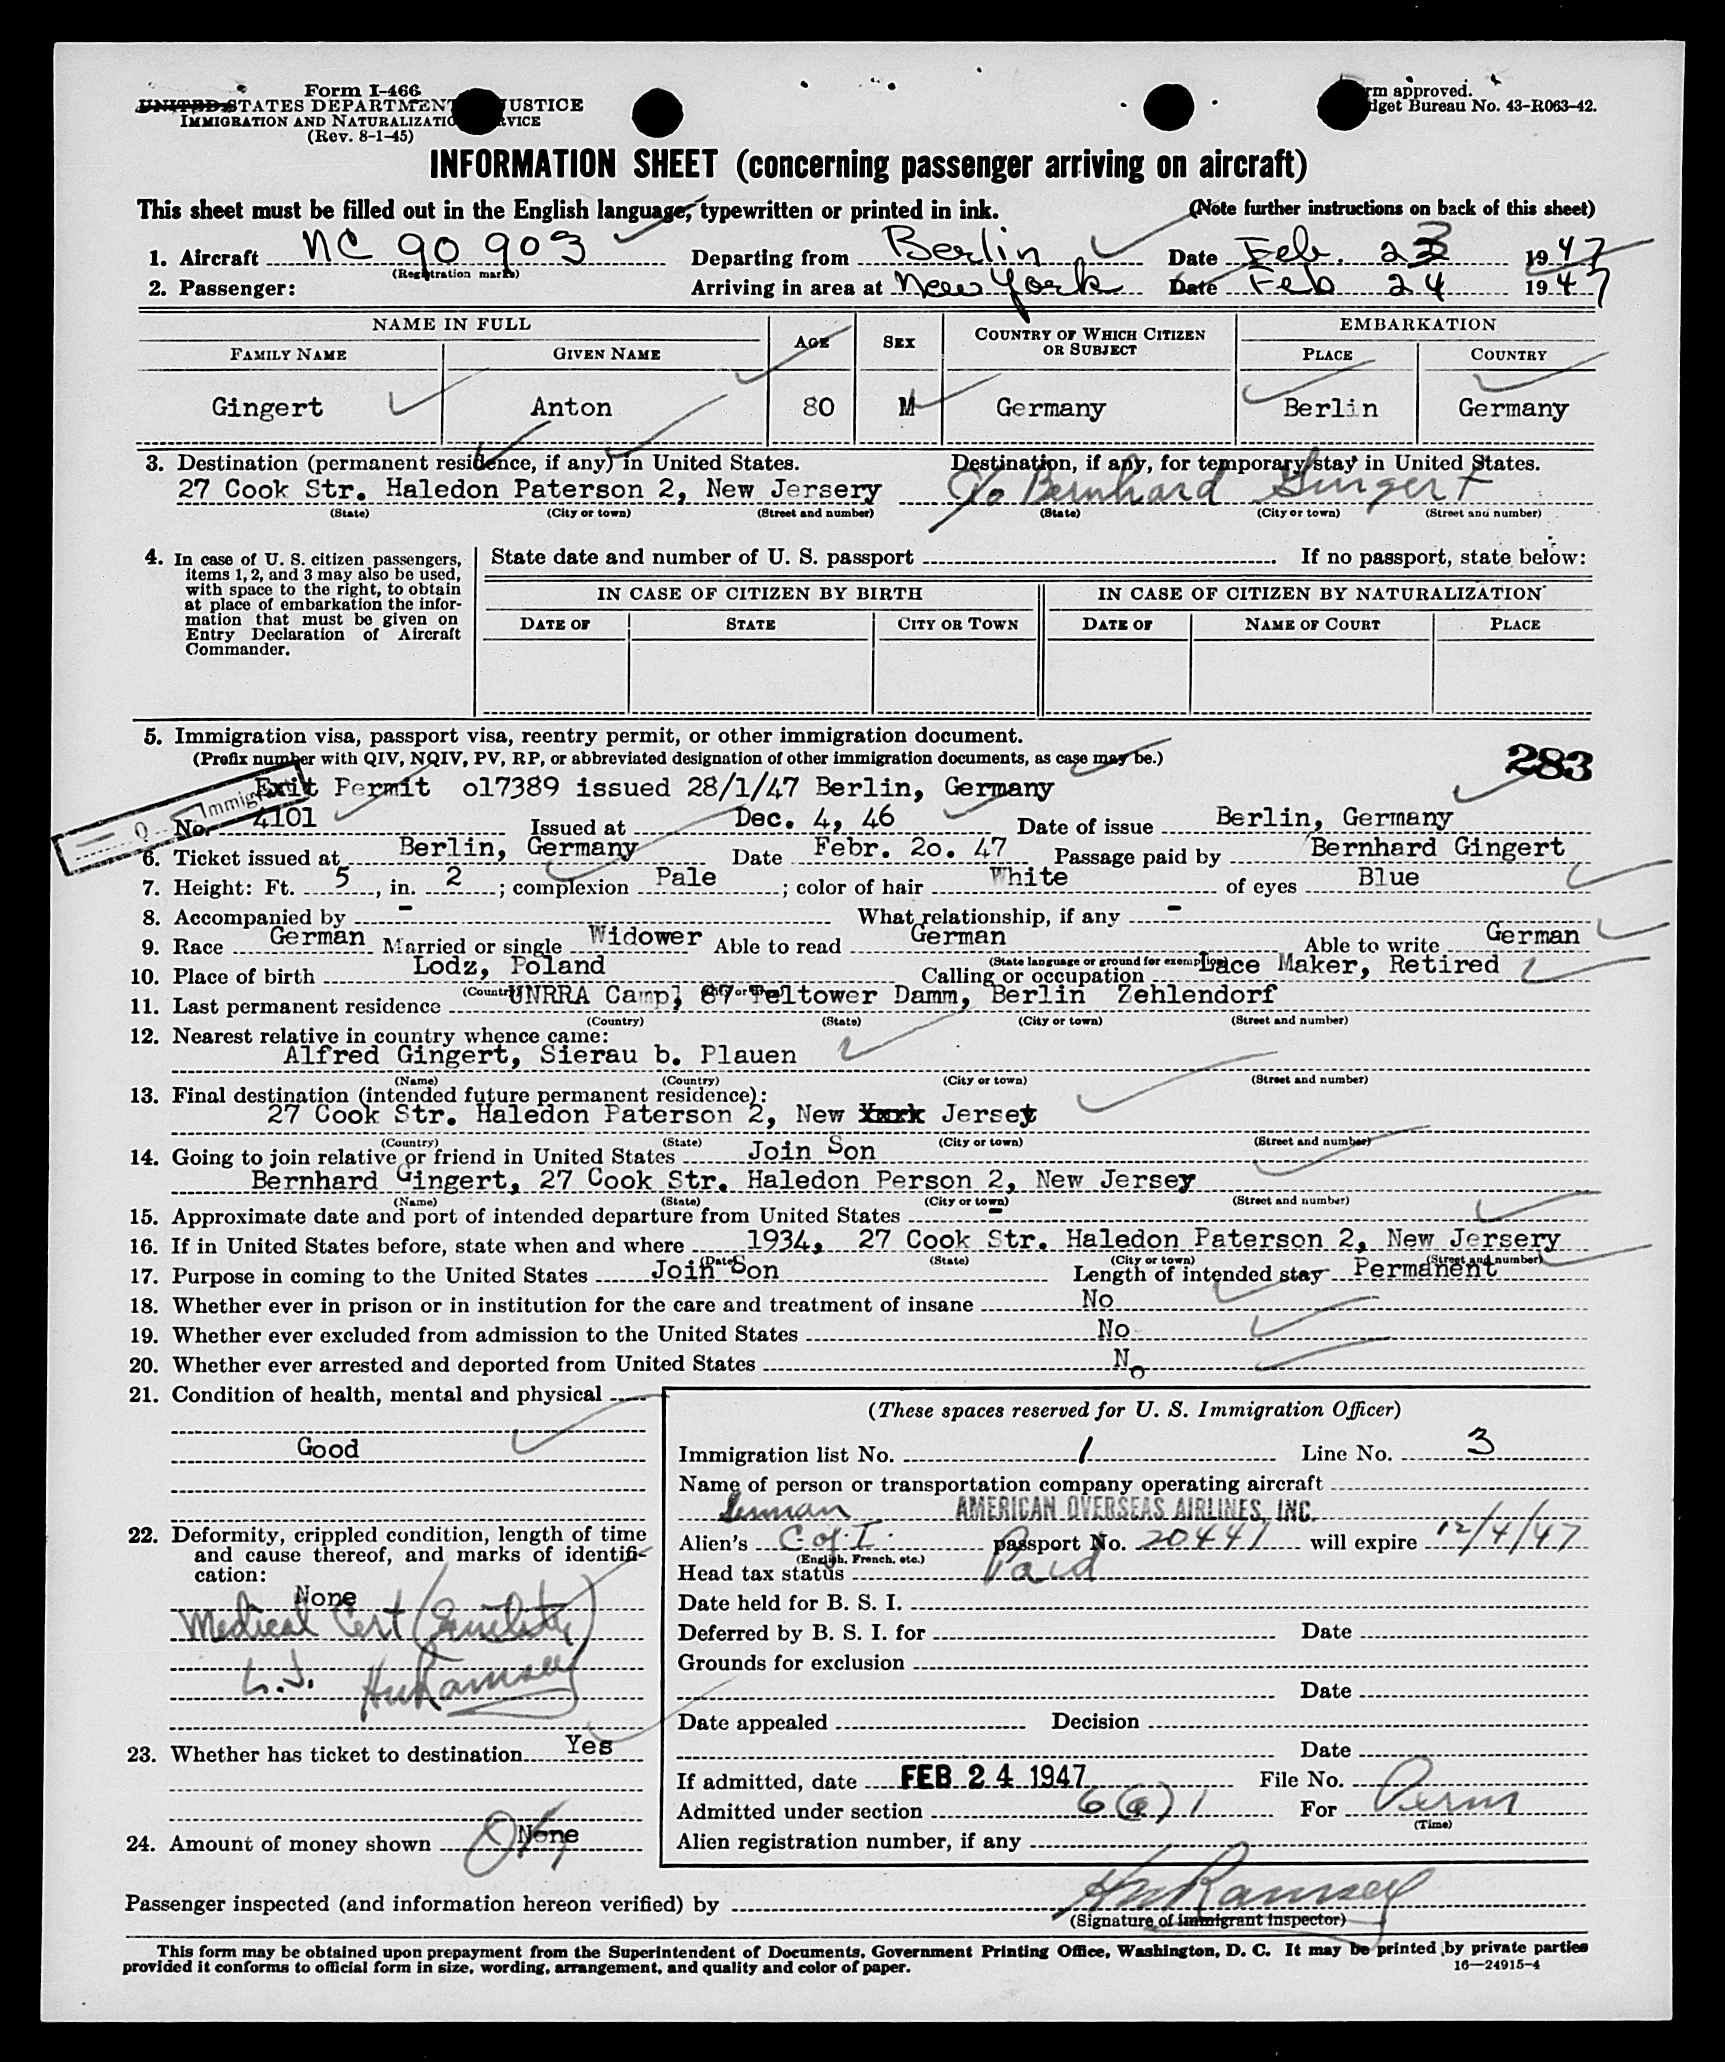 Form I-466
UNITED STATES DEPARTMENT JUSTICE
IMMIGRATION AND NATURALIZATION
(Rev. 8-1-45)
approved.
Bureau No. 43-R063-42.
INFORMATION SHEET (concerning passenger arriving on aircraft)
This sheet must be filled out in the English language, typewritten or printed in ink. (Note further instructions on back of this sheet)
1. Aircraft NC 90 903 Departing from Berlin Date Feb. 23 1947
(Registration marks)
2. Passenger: Arriving in area at New York Date Feb 24 1947
NAME IN FULL AGE SEX COUNTRY OF WHICH CITIZEN OR SUBJECT EMBARKATION
FAMILY NAME GIVEN NAME PLACE COUNTRY
Gingert Anton 80 M Germany Berlin Germany
3. Destination (permanent residence, if any) in United States. Destination, if any, for temporary stay in United States.
27 Cook Str. Haledon Paterson 2, New Jersery C/o Bernhard Gingert
(State) (City or town) (Street and number) (State) (City or town) (Street and number)
4. In case of U. S. citizen passengers, items 1, 2, and 3 may also be used, with space to the right, to obtain at place of embarkation the information that must be given on Entry Declaration of Aircraft Commander.
State date and number of U. S. passport If no passport, state below:
IN CASE OF CITIZEN BY BIRTH IN CASE OF CITIZEN BY NATURALIZATION
DATE OF STATE CITY OR TOWN DATE OF NAME OF COURT PLACE
5. Immigration visa, passport visa, reentry permit, or other immigration document.
(Prefix number with QIV, NQIV, PV, RP, or abbreviated designation of other immigration documents, as case may be.)
283
Exit Permit o17389 issued 28/1/47 Berlin, Germany
Q Immigr
No. 4101 Issued at Dec. 4, 46 Date of issue Berlin, Germany
6. Ticket issued at Berlin, Germany Date Febr. 2o. 47 Passage paid by Bernhard Gingert
7. Height: Ft. 5, in. 2; complexion Pale; color of hair White of eyes Blue
8. Accompanied by - What relationship, if any -
9. Race German Married or single Widower Able to read German Able to write German
(State language or ground for exemption)
10. Place of birth Lodz, Poland Calling or occupation Lace Maker, Retired
11. Last permanent residence UNRRA Camp, 87 Teltower Damm, Berlin Zehlendorf
(Country) (State) (City or town) (Street and number)
12. Nearest relative in country whence came:
Alfred Gingert, Sierau b. Plauen
(Name) (Country) (City or town) (Street and number)
13. Final destination (intended future permanent residence):
27 Cook Str. Haledon Paterson 2, New York Jersey
(Country) (State) (City or town) (Street and number)
14. Going to join relative or friend in United States Join Son
Bernhard Gingert, 27 Cook Str. Haledon Person 2, New Jersey
(Name) (State) (City or town) (Street and number)
15. Approximate date and port of intended departure from United States -
16. If in United States before, state when and where 1934, 27 Cook Str. Haledon Paterson 2, New Jersery
(Date) (State) (City or town) (Street and number)
17. Purpose in coming to the United States Join Son Length of intended stay Permanent
18. Whether ever in prison or in institution for the care and treatment of insane No
19. Whether ever excluded from admission to the United States No
20. Whether ever arrested and deported from United States No
21. Condition of health, mental and physical
Good
22. Deformity, crippled condition, length of time and cause thereof, and marks of identification:
None
Medical Cert (Senility)
L.J. HMRamsey
23. Whether has ticket to destination Yes
24. Amount of money shown None
OK
(These spaces reserved for U. S. Immigration Officer)
Immigration list No. 1 Line No. 3
Name of person or transportation company operating aircraft
AMERICAN OVERSEAS AIRLINES, INC.
German
Alien's C of I passport No. 20441 will expire 12/4/47
(English, French, etc.)
Head tax status Paid
Date held for B. S. I.
Deferred by B. S. I. for Date
Grounds for exclusion
Date
Date appealed Decision
Date
If admitted, date FEB 24 1947 File No.
Admitted under section 6(a)1 For Perm
(Time)
Alien registration number, if any
Passenger inspected (and information hereon verified) by HMRamsey
(Signature of immigrant inspector)
This form may be obtained upon prepayment from the Superintendent of Documents, Government Printing Office, Washington, D. C. It may be printed by private parties
provided it conforms to official form in size, wording, arrangement, and quality and color of paper. 16—24915-4